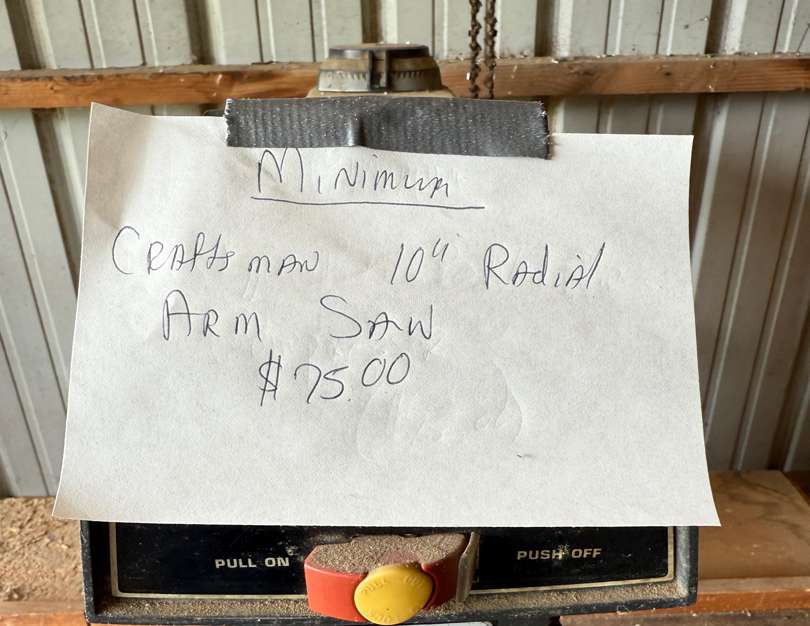 Minimum
Craftsman 10" Radial
Arm Saw
$75.00
PULL ON
PUSH OFF